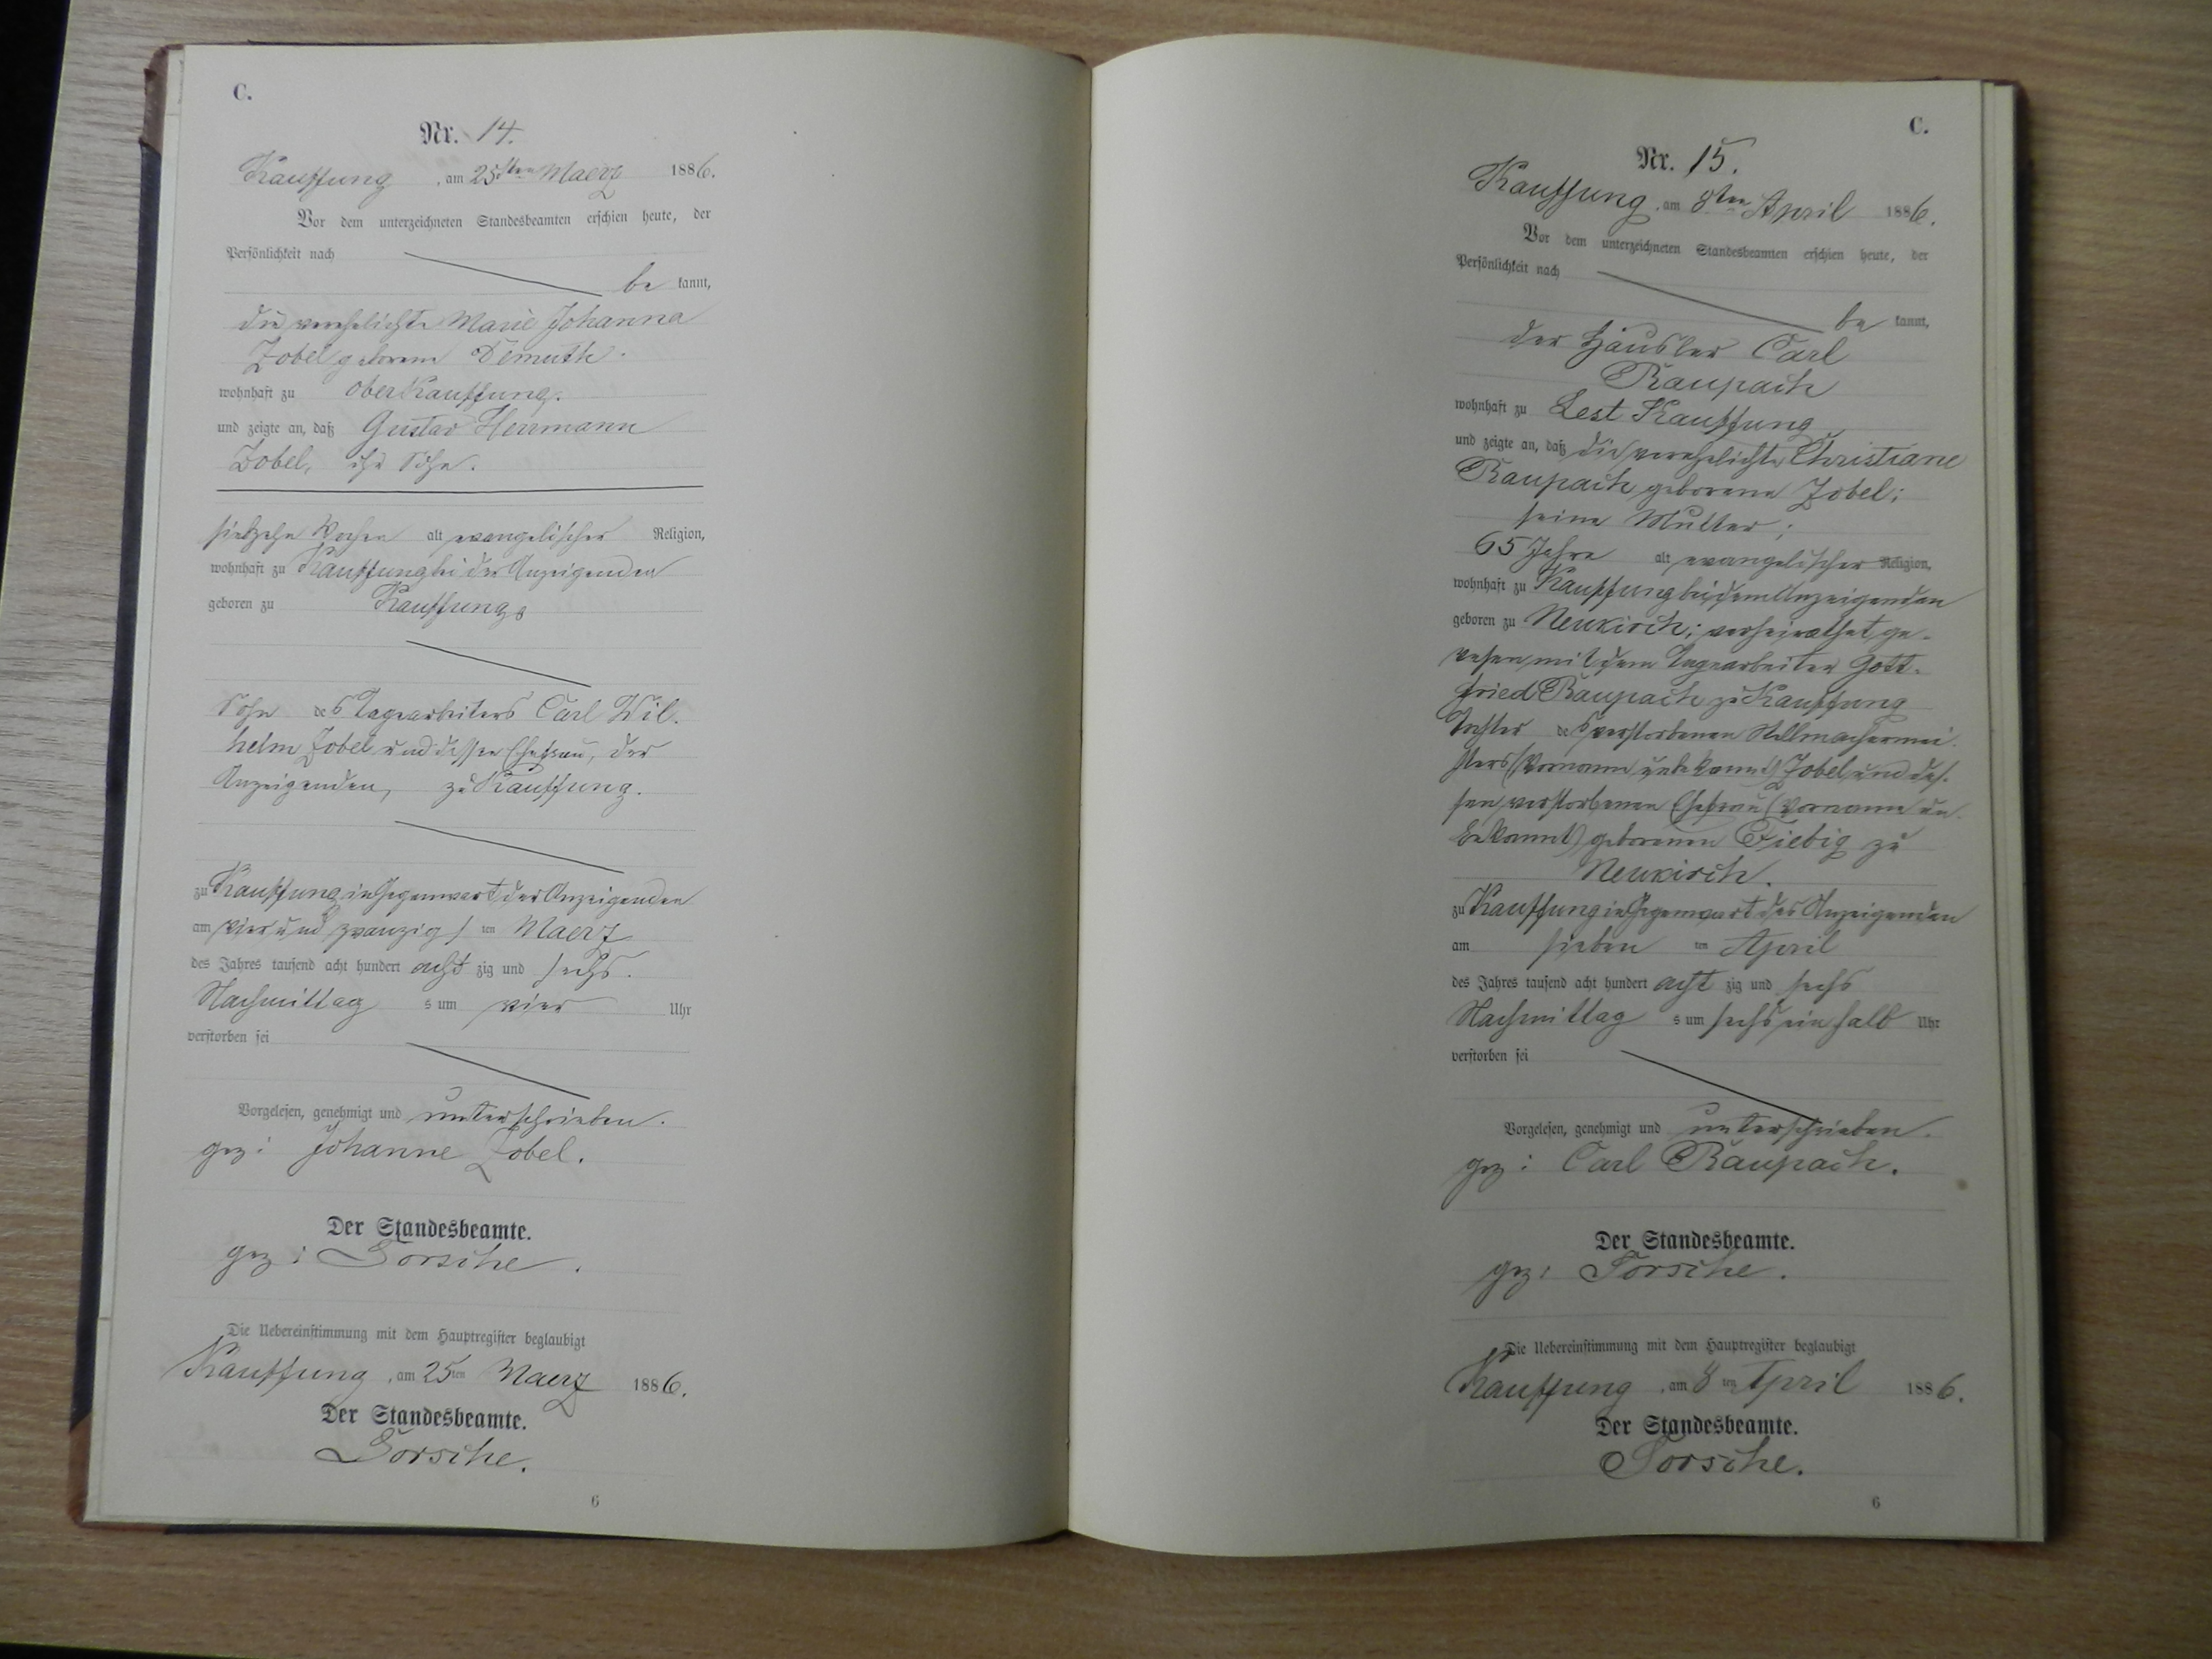 C.
Nr. 14.
Kauffung, am 25sten Maerz 1886.
Vor dem unterzeichneten Standesbeamten erschien heute, der
Persönlichkeit nach
be kannt,
die verehelichte Marie Johanna
Zobel geborene Demuth.
wohnhaft zu Ober Kauffung.
und zeigte an, daß Gustav Herrmann
Zobel, ihr Sohn.
siebzehn Wochen alt evangelischer Religion,
wohnhaft zu Kauffung bei der Anzeigenden
geboren zu Kauffung,
Sohn des Tagearbeiters Carl Wil-
helm Zobel und dessen Ehefrau, der
Anzeigenden, zu Kauffung.
zu Kauffung in Gegenwart der Anzeigenden
am vier und zwanzigsten Maerz
des Jahres tausend acht hundert acht zig und sechs.
Nachmittag s um vier Uhr
verstorben sei
Vorgelesen, genehmigt und unterschrieben.
gez: Johanne Zobel.
Der Standesbeamte.
gez: Torsche.
Die Uebereinstimmung mit dem Hauptregister beglaubigt
Kauffung, am 25ten Maerz 1886.
Der Standesbeamte.
Torsche.
6
C.
Nr. 15.
Kauffung, am 8ten April 1886.
Vor dem unterzeichneten Standesbeamten erschien heute, der
Persönlichkeit nach
be kannt,
der Häusler Carl
Raupach
wohnhaft zu Lest Kauffung
und zeigte an, daß die verehelichte Christiane
Raupach geborene Zobel;
seine Mutter;
65 Jahre alt evangelischer Religion,
wohnhaft zu Kauffung bei dem Anzeigenden
geboren zu Neukirch; verheirathet ge-
wesen mit dem Tagearbeiter Gott-
fried Raupach zu Kauffung
Tochter des verstorbenen Stellmachermei-
sters (Vorname unbekannt) Zobel und des-
sen verstorbenen Ehefrau (Vorname un-
bekannt) geborenen Fiebig zu
Neukirch.
zu Kauffung in Gegenwart des Anzeigenden
am sieben ten April
des Jahres tausend acht hundert acht zig und sechs
Nachmittag s um sechs ein halb Uhr
verstorben sei
Vorgelesen, genehmigt und unterschrieben.
gez: Carl Raupach.
Der Standesbeamte.
gez: Torsche.
Die Uebereinstimmung mit dem Hauptregister beglaubigt
Kauffung, am 8ten April 1886.
Der Standesbeamte.
Torsche.
6